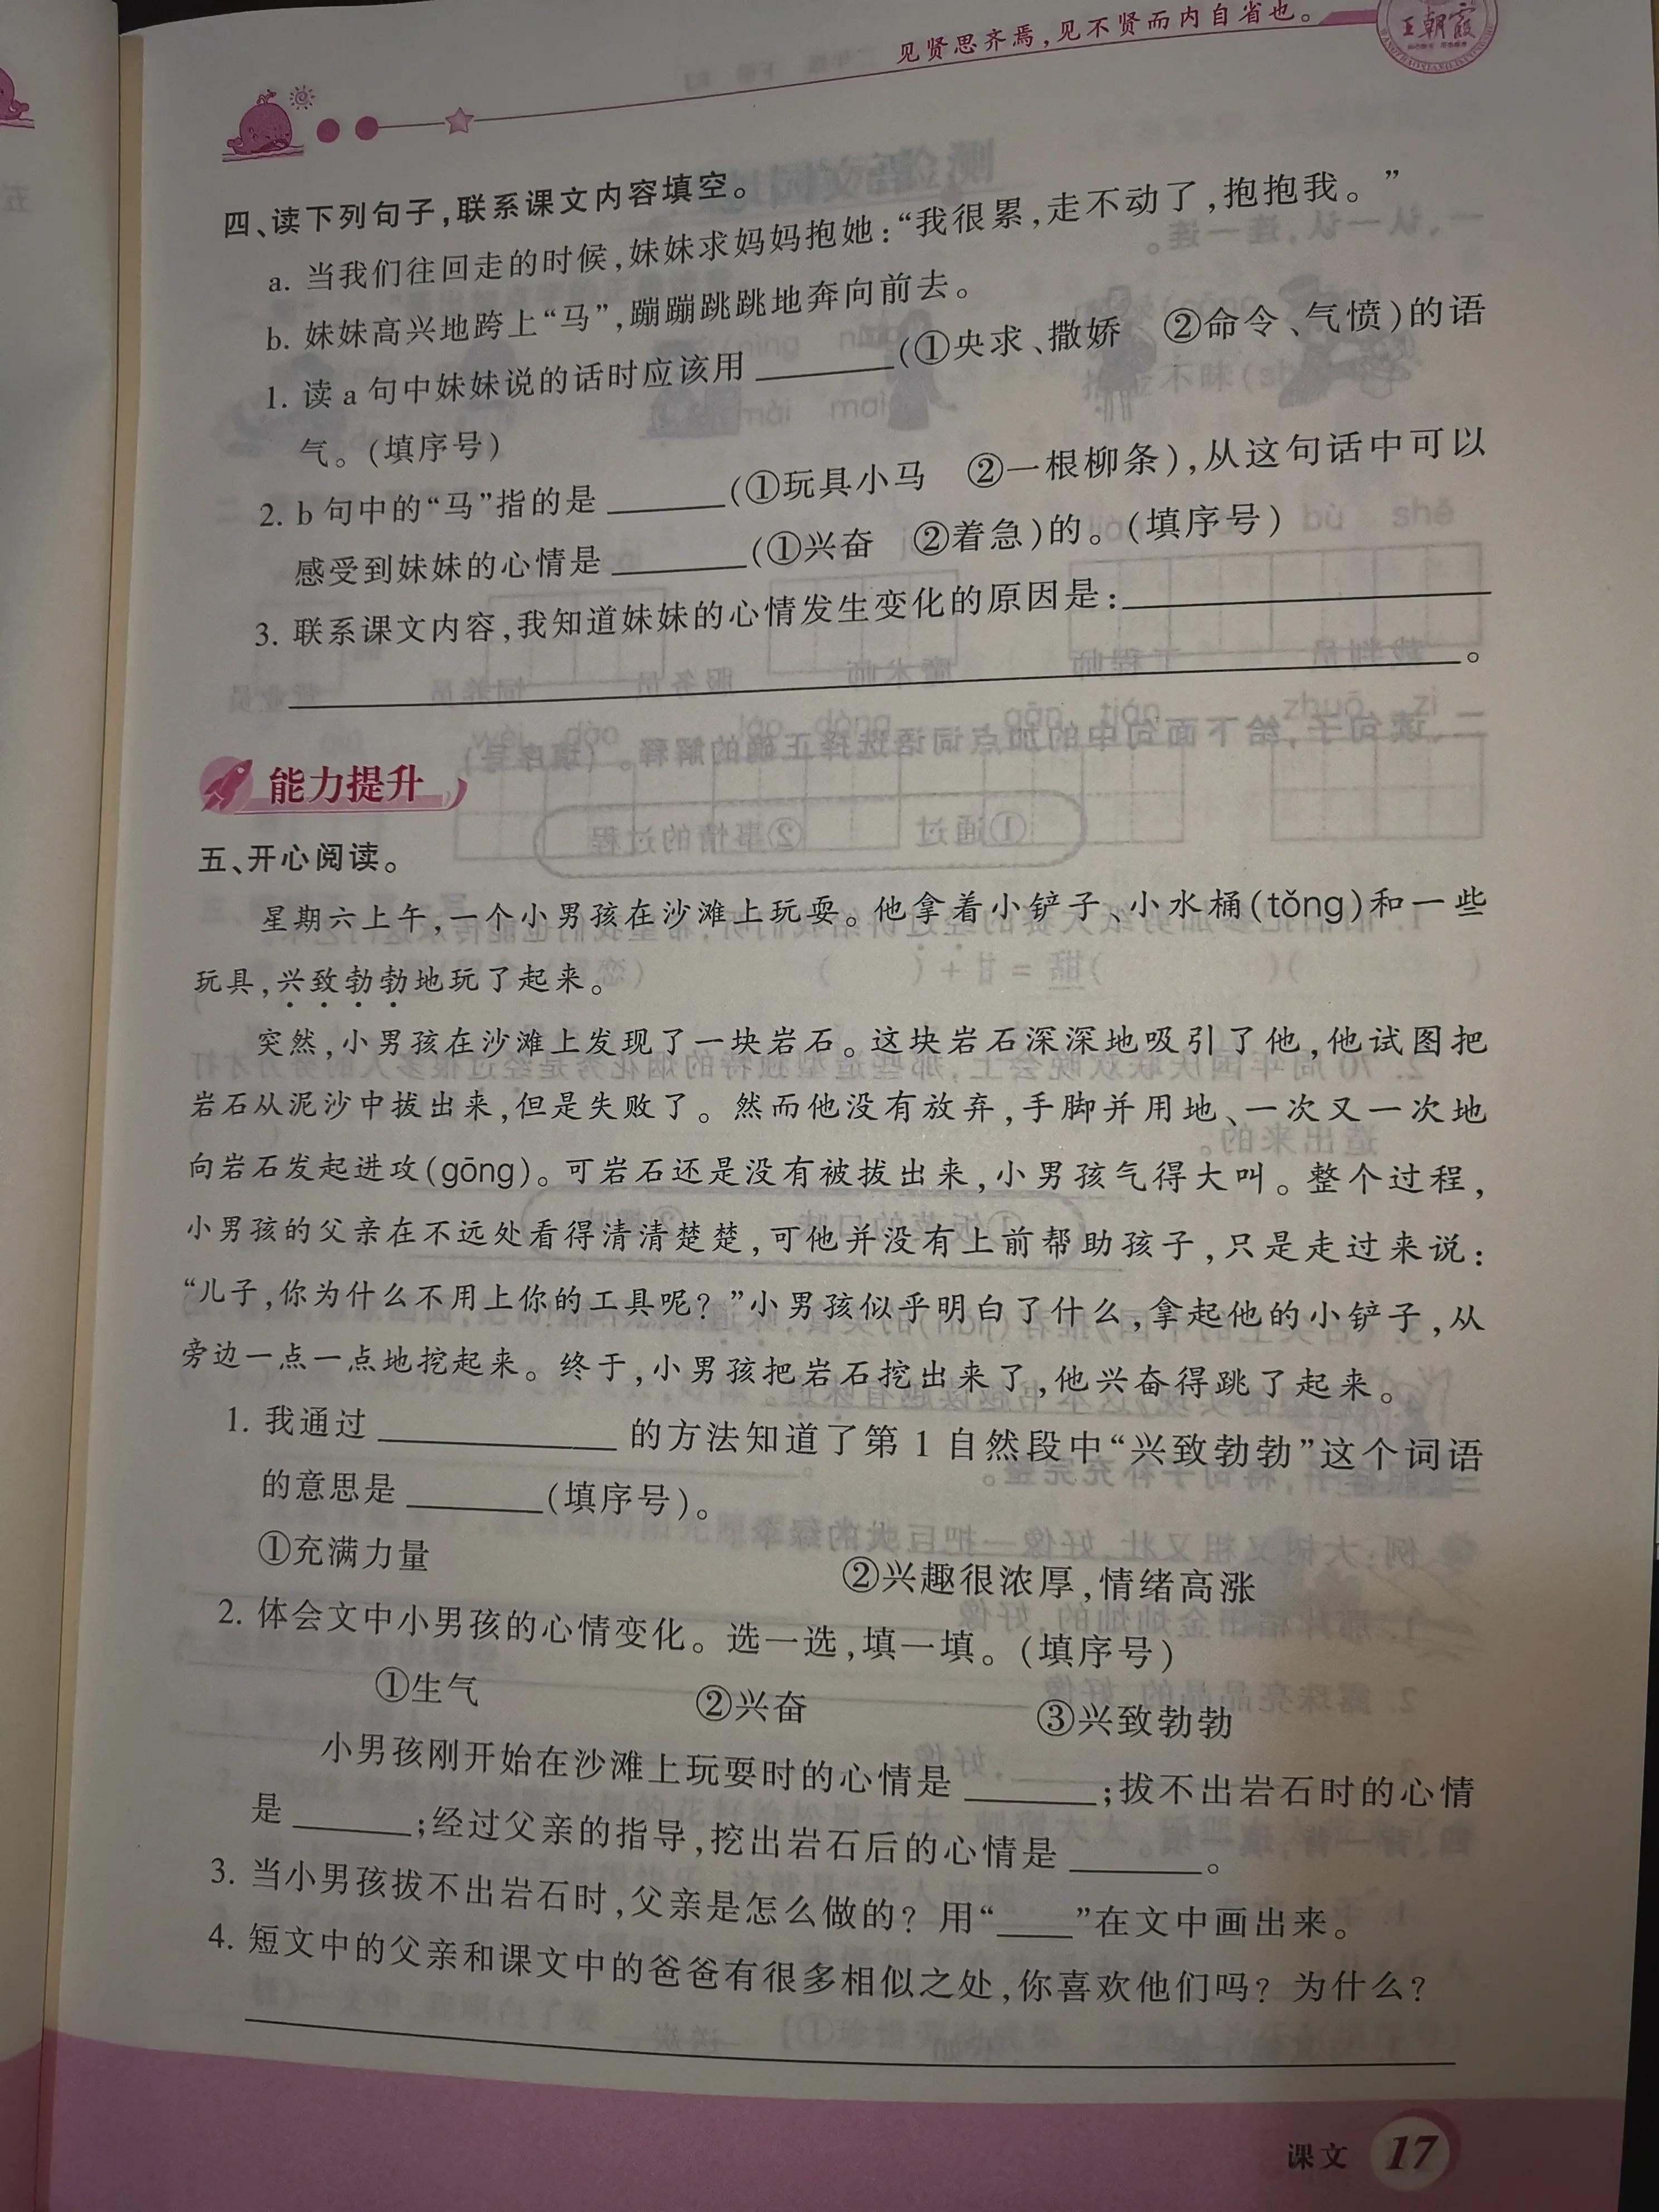 见贤思齐焉,见不贤而内自省也。
王朝霞
四、读下列句子,联系课文内容填空。
a. 当我们往回走的时候,妹妹求妈妈抱她:“我很累,走不动了,抱抱我。”
b. 妹妹高兴地跨上“马”,蹦蹦跳跳地奔向前去。
1. 读 a 句中妹妹说的话时应该用______(①央求、撒娇 ②命令、气愤)的语
气。(填序号)
2. b 句中的“马”指的是______(①玩具小马 ②一根柳条),从这句话中可以
感受到妹妹的心情是______(①兴奋 ②着急)的。(填序号)
3. 联系课文内容,我知道妹妹的心情发生变化的原因是:______
______。
能力提升
五、开心阅读。
星期六上午,一个小男孩在沙滩上玩耍。他拿着小铲子、小水桶(tǒng)和一些
玩具,兴致勃勃地玩了起来。
突然,小男孩在沙滩上发现了一块岩石。这块岩石深深地吸引了他,他试图把
岩石从泥沙中拔出来,但是失败了。然而他没有放弃,手脚并用地、一次又一次地
向岩石发起进攻(gōng)。可岩石还是没有被拔出来,小男孩气得大叫。整个过程,
小男孩的父亲在不远处看得清清楚楚,可他并没有上前帮助孩子,只是走过来说:
“儿子,你为什么不用上你的工具呢?”小男孩似乎明白了什么,拿起他的小铲子,从
旁边一点一点地挖起来。终于,小男孩把岩石挖出来了,他兴奋得跳了起来。
1. 我通过______的方法知道了第 1 自然段中“兴致勃勃”这个词语
的意思是______(填序号)。
①充满力量 ②兴趣很浓厚,情绪高涨
2. 体会文中小男孩的心情变化。选一选,填一填。(填序号)
①生气 ②兴奋 ③兴致勃勃
小男孩刚开始在沙滩上玩耍时的心情是______;拔不出岩石时的心情
是______;经过父亲的指导,挖出岩石后的心情是______。
3. 当小男孩拔不出岩石时,父亲是怎么做的?用“____”在文中画出来。
4. 短文中的父亲和课文中的爸爸有很多相似之处,你喜欢他们吗?为什么?
课文 17